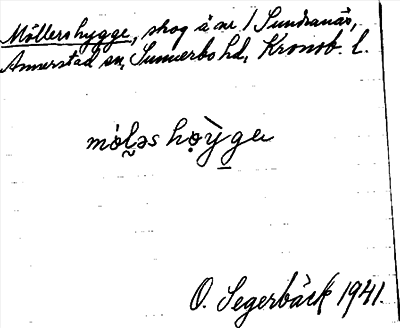 Möllershygge, skog å nr 1 Sundranäs,
Annerstad sn, Sunnerbo hd, Kronob. l.
O. Segerbäck 1941.